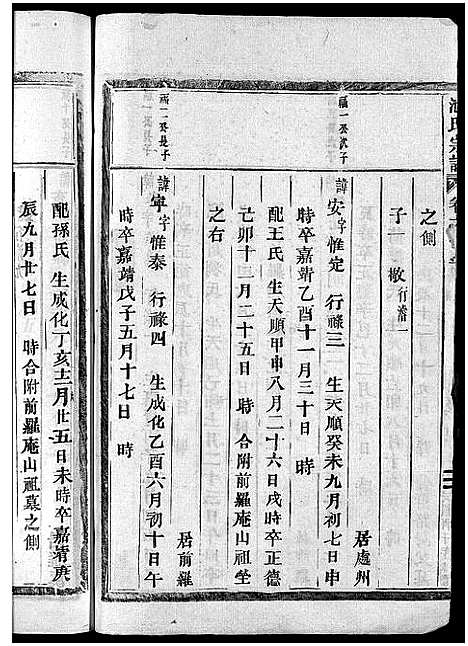 氏宗譜
之側
子一 敬 行
福一公次子
諱安字惟定 行祿三 生天順癸未九月初七日申
居處州
時卒嘉靖乙酉十一月三十日 時
配王氏 生天順甲申八月二十六日戌時卒正德
己卯十二月二十五日 時 合附前羅庵山祖塋
之右
福二公長子
諱寧字惟泰 行祿四 生成化乙酉六月初十日午
居前羅
時卒嘉靖戊子五月十七日 時
配孫氏 生成化丁亥十二月廿五日未時卒嘉靖庚
辰九月廿七日 時合附前羅庵山祖墓之側